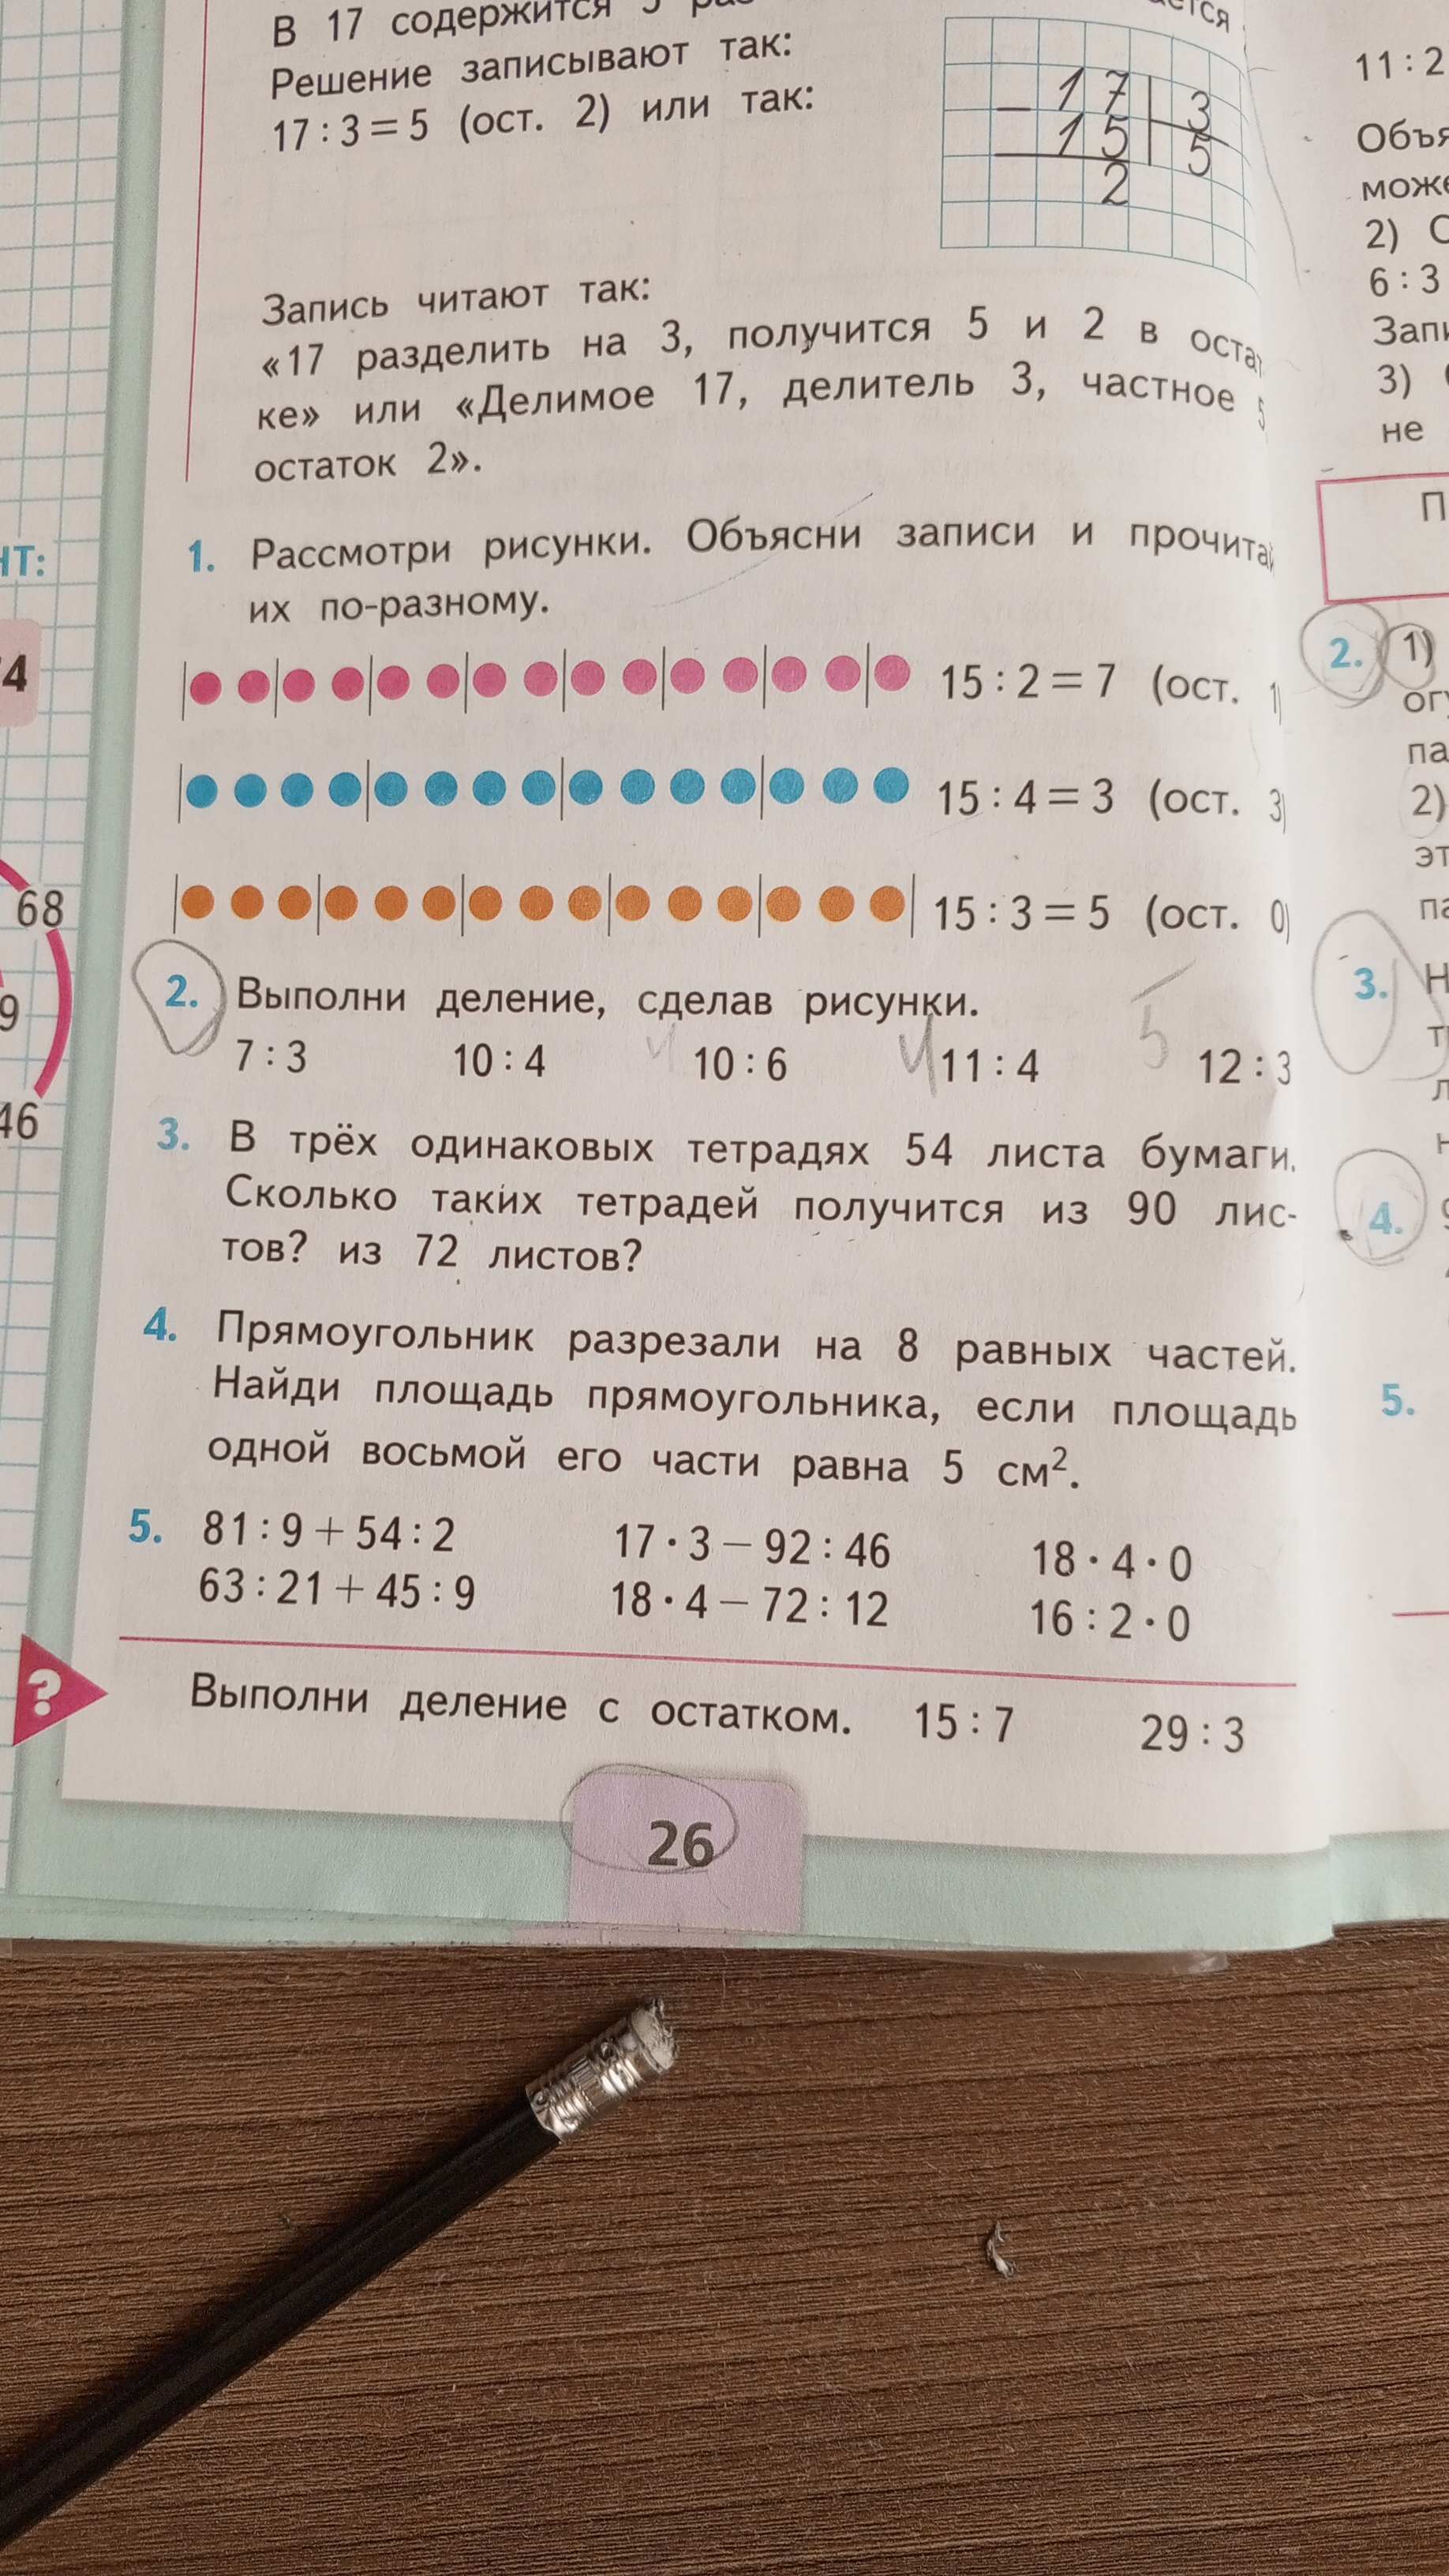 В 17 содержится 5
Решение записывают так:
17 : 3 = 5 (ост. 2) или так:
17 3
15 5
2
Запись читают так:
«17 разделить на 3, получится 5 и 2 в остат
ке» или «Делимое 17, делитель 3, частное 5
остаток 2».
1. Рассмотри рисунки. Объясни записи и прочитай
их по-разному.
15 : 2 = 7 (ост. 1)
15 : 4 = 3 (ост. 3)
15 : 3 = 5 (ост. 0)
2. Выполни деление, сделав рисунки.
7 : 3 10 : 4 10 : 6 11 : 4 12 : 3
3. В трёх одинаковых тетрадях 54 листа бумаги.
Сколько таких тетрадей получится из 90 лис-
тов? из 72 листов?
4. Прямоугольник разрезали на 8 равных частей.
Найди площадь прямоугольника, если площадь
одной восьмой его части равна 5 см².
5. 81 : 9 + 54 : 2 17 · 3 − 92 : 46 18 · 4 · 0
63 : 21 + 45 : 9 18 · 4 − 72 : 12 16 : 2 · 0
? Выполни деление с остатком. 15 : 7 29 : 3
26
68
46
11 : 2
2)
6 : 3
3)
не
2. 1)
2)
3.
4.
5.